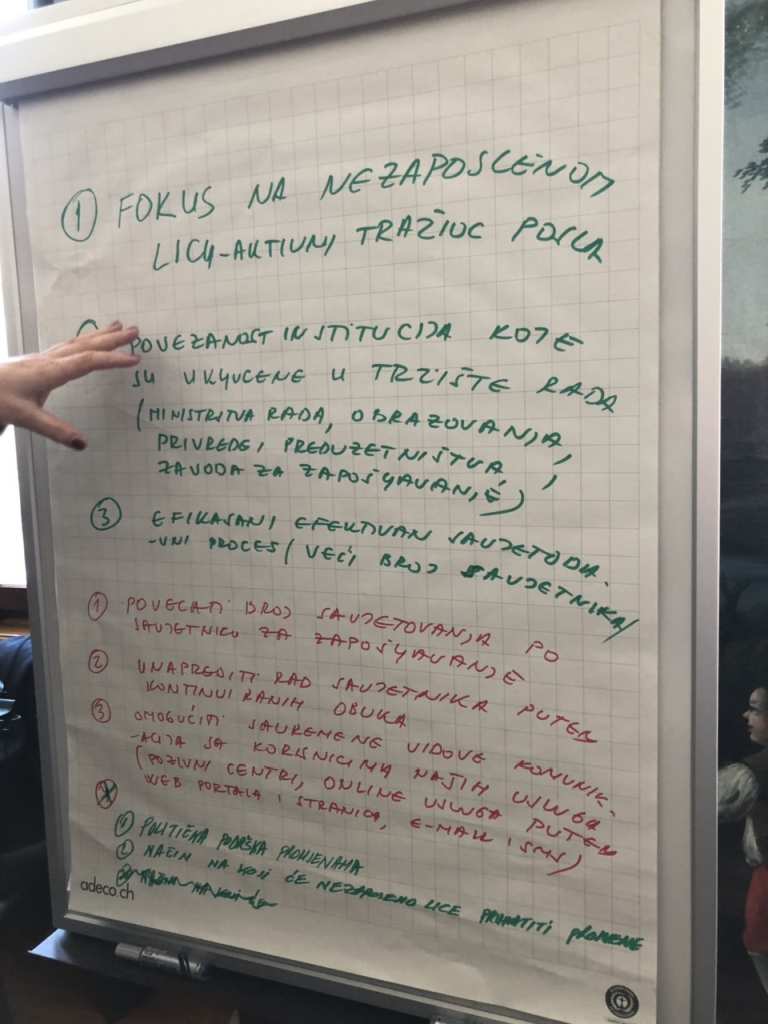 ① FOKUS NA NEZAPOSLENOM
LICU-AKTIVNI TRAŽIOC POSLA
POVEZANOST INSTITUCIJA KOJE
SU UKLJUCENE U TRŽIŠTE RADA
(MINISTRTVA RADA, OBRAZOVANJA,
PRIVREDE, PREDUZETNIŠTVA,
ZAVODA ZA ZAPOŠLJAVANJE)
③ EFIKASAN I EFEKTIVAN SAVJETODA-
-VNI PROCES (VEĆI BROJ SAVJETNIKA)
① POVECATI BROJ SAVJETOVANJA PO
SAVJETNIKU ZA ZAPOŠLJAVANJE
② UNAPREDITI RAD SAVJETNIKA PUTEM
KONTINUIRANIH OBUKA
③ OMOGUĆITI SAVREMENE VIDOVE KOMUNIK-
-ACIJA SA KORISNICIMA NAŠIH USLUGA
(POZIVNI CENTRI, ONLINE USLUGA PUTEM
WEB PORTALA I STRANICA, E-MAIL I SMS)
① POLITIČKA PODRŠKA PROMJENAMA
② NAČIN NA KOJI ĆE NEZAPOSLENO LICE PRIHVATITI PROMJENE
adeco.ch